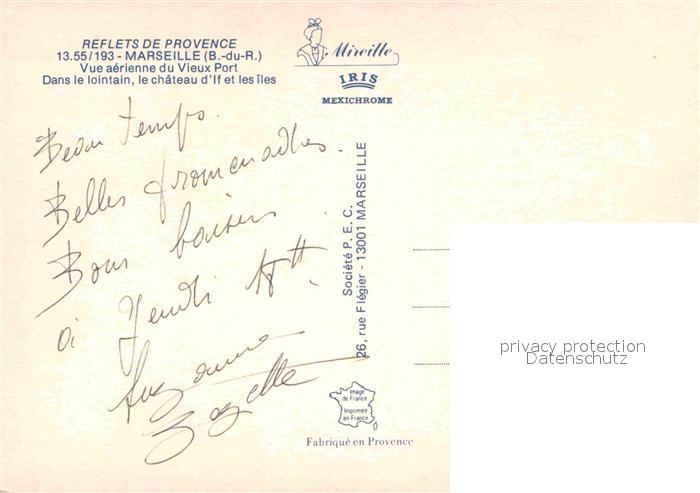 REFLETS DE PROVENCE
13.55/193 - MARSEILLE (B.-du-R.)
Vue aérienne du Vieux Port
Dans le lointain, le château d'If et les îles
Mireille
IRIS
MEXICHROME
Beau temps.
Belles promenades.
Bons baisers
à Jeudi
Suzanne
Zezette
Société P.E.C.
26, rue Flégier - 13001 MARSEILLE
Image
de France
Imprimée
en France
Fabriqué en Provence
privacy protection
Datenschutz